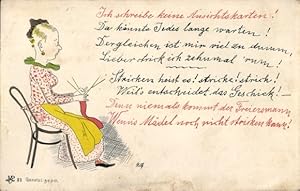 Ich schreibe keine Ansichtskarten!
Da könnte Jedes lange warten!
Dergleichen ist mir viel zu dumm,
Lieber strick ich zehnmal 'rum!
Stricken heisst es! stricke! strick!
Weil's entscheidet das Geschick! –
Denn niemals kommt der Freiersmann,
Wenn's Mädel noch nicht stricken kann!